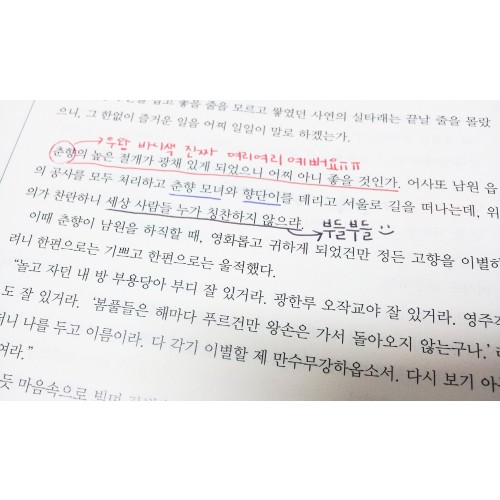 줄을 모르고 쌓였던 사연의 실타래는 끝날 줄을 몰랐
으니, 그 한없이 즐거운 일을 어찌 일일이 말로 하겠는가.
우와 바시색 진짜 여리여리 예뻐요ㅠㅠ
춘향의 높은 절개가 광채 있게 되었으니 어찌 아니 좋을 것인가. 어사또 남원 읍
의 공사를 모두 처리하고 춘향 모녀와 향단이를 데리고 서울로 길을 떠나는데, 위
의가 찬란하니 세상 사람들 누가 칭찬하지 않으랴. 부들부들
이때 춘향이 남원을 하직할 때, 영화롭고 귀하게 되었건만 정든 고향을 이별하
려니 한편으로는 기쁘고 한편으로는 울적했다.
“놀고 자던 내 방 부용당아 부디 잘 있거라. 광한루 오작교야 잘 있거라. 영주각
도 잘 있거라. ‘봄풀들은 해마다 푸르건만 왕손은 가서 돌아오지 않는구나.’
나를 두고 이름이라. 다 각기 이별할 제 만수무강하옵소서. 다시 보기
여라.”
듯 마음속으로 빌며